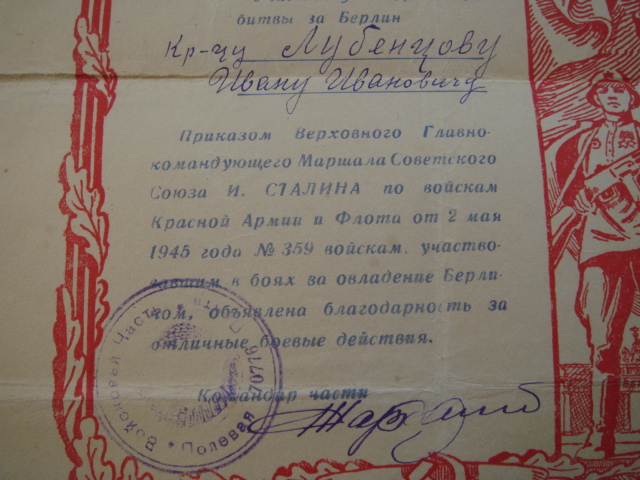 битвы за Берлин
Кр-цу Лубенцову
Ивану Ивановичу
Приказом Верховного Главно-
командующего Маршала Советского
Союза И. СТАЛИНА по войскам
Красной Армии и Флота от 2 мая
1945 года № 359 войскам, участво-
вавшим в боях за овладение Берли-
ном, объявлена благодарность за
отличные боевые действия.
Командир части
Войсковой Части
Полевая 70776